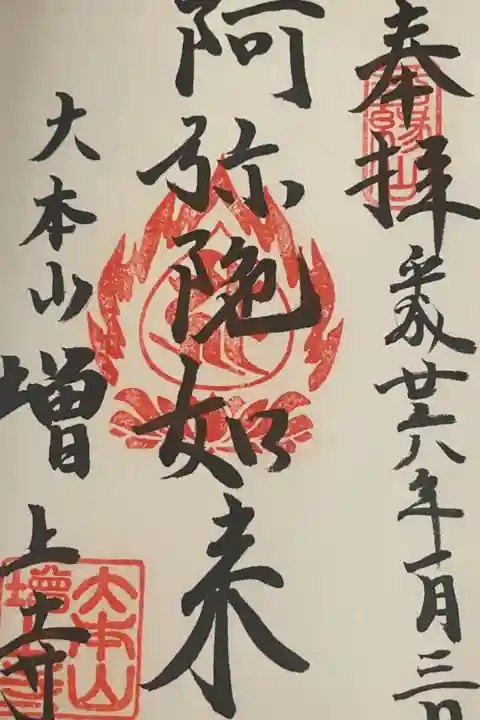 奉拝
平成廿六年一月三日
阿弥陀如来
大本山増上寺
三縁山
大本山増上寺